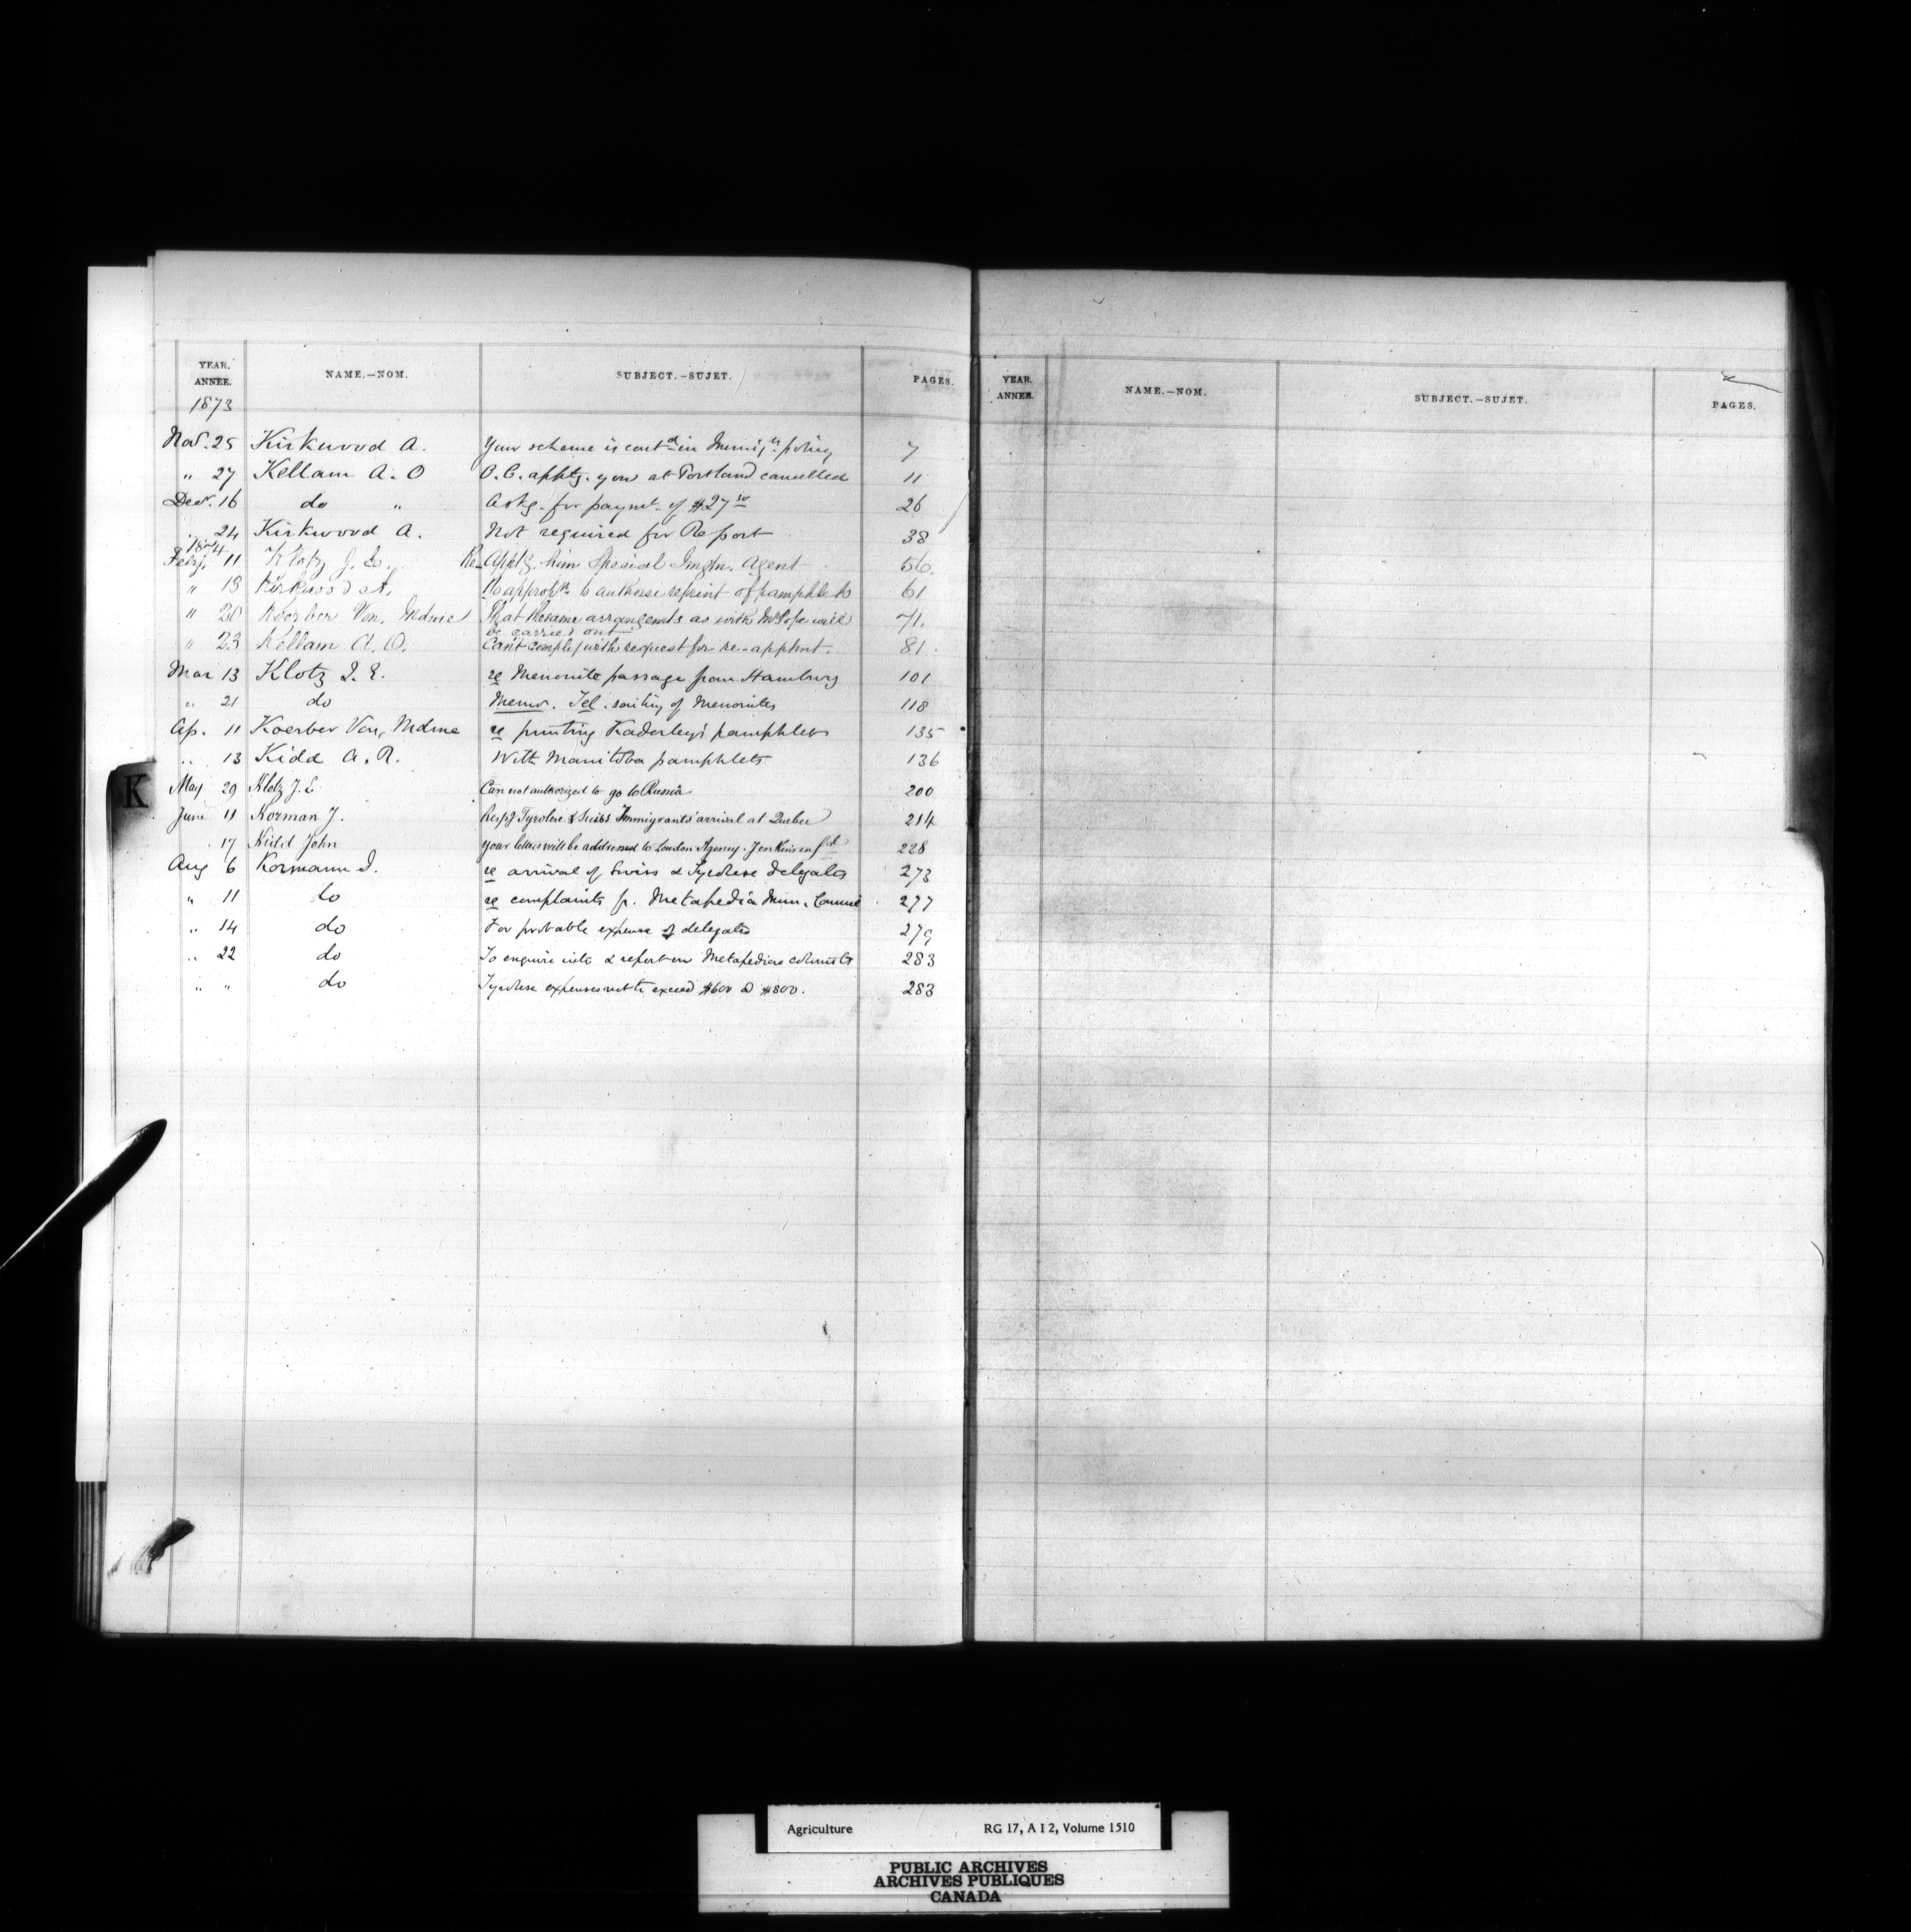 YEAR. ANNÉE. NAME.—NOM. SUBJECT.—SUJET. PAGES.
1873
Nov. 25 Kirkwood A. Your scheme is contd in Immign policy 7
" 27 Kellam A. O O.C. apptg. you at Portland cancelled 11
Decr. 16 do " Askg. for paymt. of $27 50 26
" 24 Kirkwood A. Not required for Report 38
1874
Feby. 11 Klotz J. E. Re Apptg. him Special Imgtn. Agent 56.
" 13 Kirkwood A. No appropn. to authorise reprint of pamphlets 61
" 20 Koerber Von, Mdme That the same arrangements as with Mr Pope will 71.
be carried out
" 23 Kellam A. O. Can't comply with request for re-apptmt. 81.
Mar 13 Klotz J. E. re Menonite passage from Hamburg 101
" 21 do Memo. Tel. of Menonites 118
Ap. 11 Koerber Von, Mdme re printing Kaderley's pamphlets 135
" 13 Kidd A. R. With Manitoba pamphlets 136
K
May 29 Klotz J. E Can not authorized to go to Russia 200
June 11 Korman J. Respg Tyrolese & Swiss Immigrants' arrival at Quebec 214
17 Kidd John Your letters will be addressed to London Agency. Jenkins infd 228
Aug 6 Kormann I. re arrival of Swiss & Tyrolese delegates 273
" 11 do re complaints fr. Metapedia Mun. Council 277
" 14 do For probable expense of delegates 279
" 22 do To enquire into & report on Metapedia colonists 283
" " do Tyrolese expenses not to exceed $600 @ $800. 283
YEAR. ANNÉE. NAME.—NOM. SUBJECT.—SUJET. PAGES.
Agriculture RG 17, A I 2, Volume 1510
PUBLIC ARCHIVES
ARCHIVES PUBLIQUES
CANADA